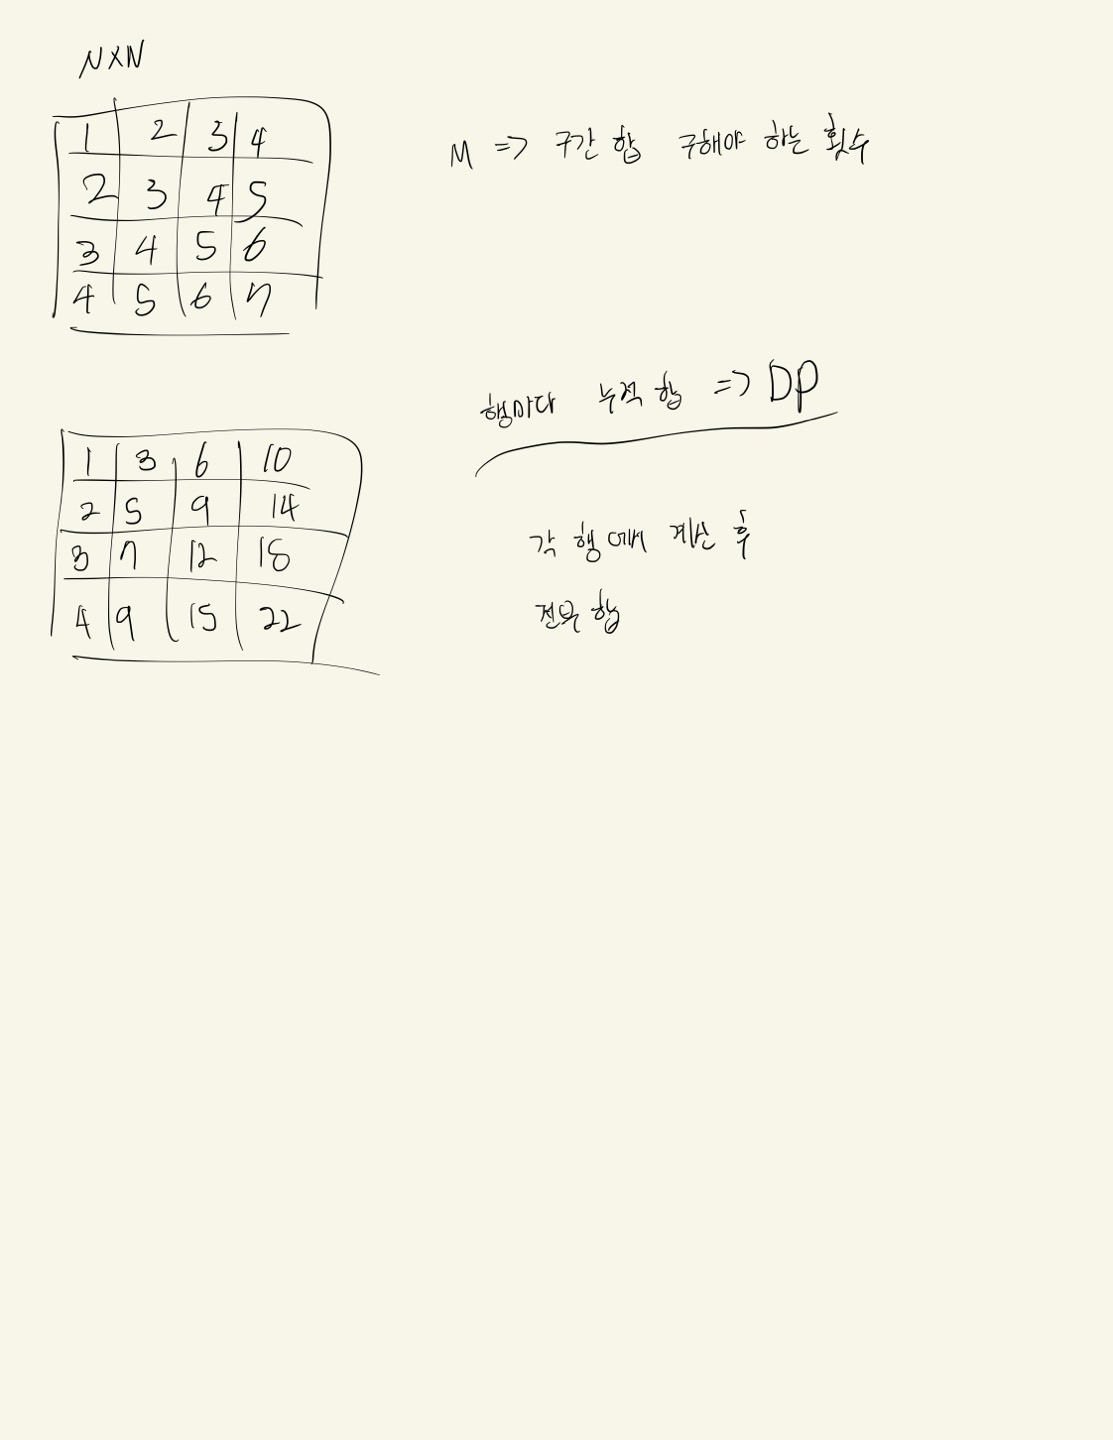 N×N
1 2 3 4
2 3 4 5
3 4 5 6
4 5 6 7
M => 구간 합 구해야 하는 횟수
행마다 누적 합 => DP
1 3 6 10
2 5 9 14
3 7 12 18
4 9 15 22
각 행에서 계산 후
전부 합